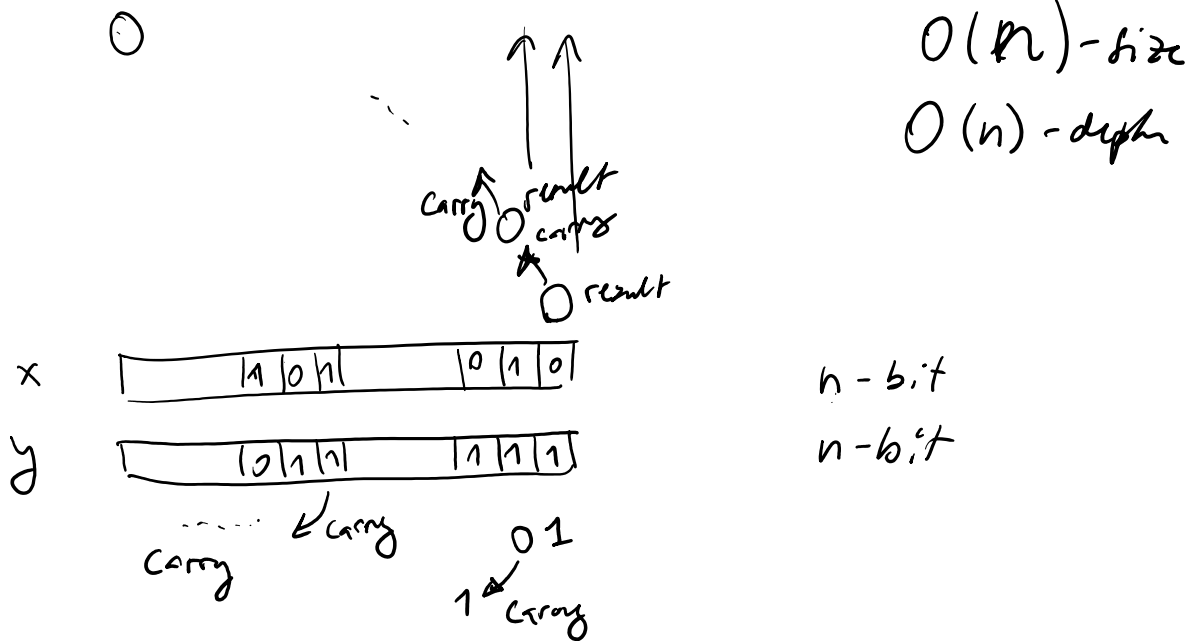 O(n)-size
O(n)-depth
carry result
carry
result
x 1 0 1 0 1 0 n-bit
y 0 1 1 1 1 1 n-bit
carry 0 1
carry 1 carry